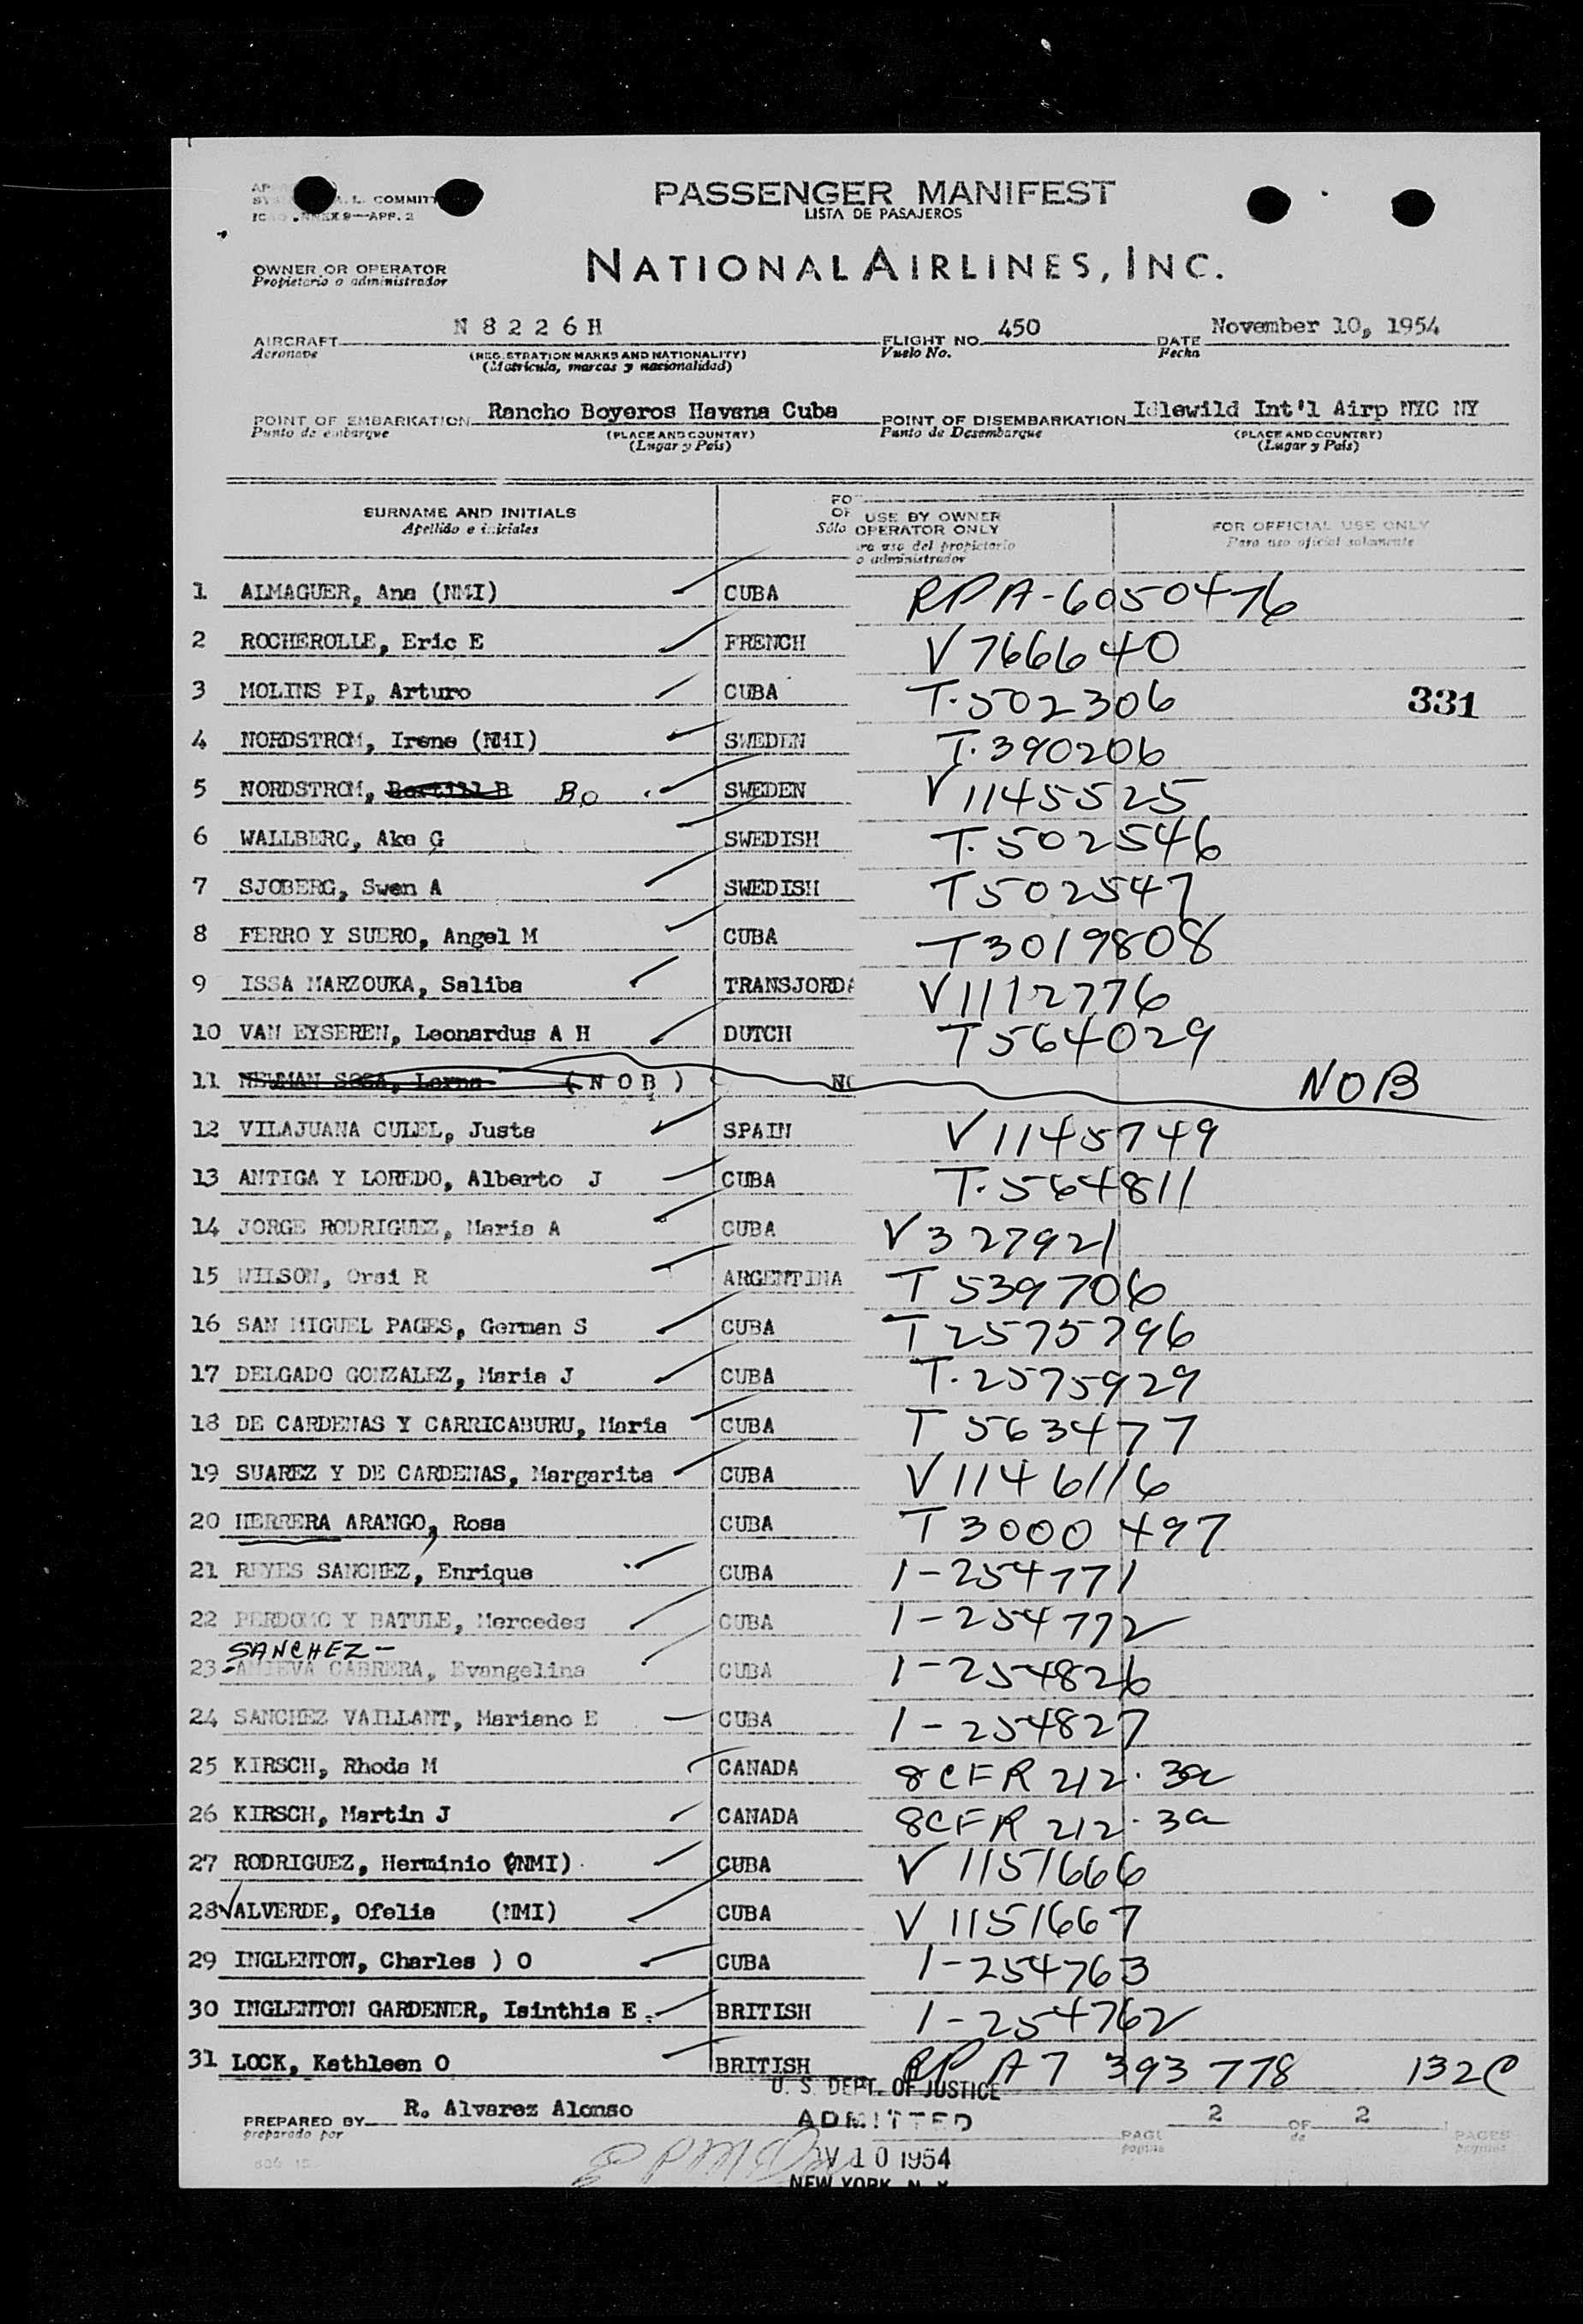 PASSENGER MANIFEST
LISTA DE PASAJEROS
COMMITT
9—APP. 2
NATIONAL AIRLINES, INC.
OWNER OR OPERATOR
Propietario o administrador
AIRCRAFT N 8 2 2 6 H FLIGHT NO. 450 DATE November 10, 1954
Aeronave (REGISTRATION MARKS AND NATIONALITY) Vuelo No. Fecha
(Matrícula, marcas y nacionalidad)
POINT OF EMBARKATION Rancho Boyeros Havana Cuba POINT OF DISEMBARKATION Idlewild Int'l Airp NYC NY
Punto de embarque (PLACE AND COUNTRY) Punto de Desembarque (PLACE AND COUNTRY)
(Lugar y País) (Lugar y País)
SURNAME AND INITIALS
Apellido e iniciales
FO
OF USE BY OWNER
Sólo OPERATOR ONLY
ra uso del propietario
o administrador
FOR OFFICIAL USE ONLY
Para uso oficial solamente
1 ALMAGUER, Ana (NMI) CUBA RPA-6050476
2 ROCHEROLLE, Eric E FRENCH V7666640
3 MOLINS PI, Arturo CUBA T.502306 331
4 NORDSTROM, Irene (NMI) SWEDEN T.390206
5 NORDSTROM, Bertill B Bo SWEDEN V1145525
6 WALLBERG, Ake G SWEDISH T.502546
7 SJOBERG, Swen A SWEDISH T502547
8 FERRO Y SUERO, Angel M CUBA T3019808
9 ISSA MARZOUKA, Saliba TRANSJORDA V1112776
10 VAN EYSEREN, Leonardus A H DUTCH T564029
11 NEWMAN SOSA, Lorna (N O B) NO NOB
12 VILAJUANA CULEL, Justa SPAIN V1145749
13 ANTIGA Y LOREDO, Alberto J CUBA T.564811
14 JORGE RODRIGUEZ, Maria A CUBA V327921
15 WILSON, Orsi R ARGENTINA T539706
16 SAN MIGUEL PAGES, German S CUBA T2575796
17 DELGADO GONZALEZ, Maria J CUBA T.2575929
18 DE CARDENAS Y CARRICABURU, Maria CUBA T563477
19 SUAREZ Y DE CARDENAS, Margarita CUBA V1146116
20 HERRERA ARANGO, Rosa CUBA T3000497
21 REYES SANCHEZ, Enrique CUBA 1-254771
22 PERDOMO Y BATULE, Mercedes CUBA 1-254772
SANCHEZ-
23 AMIEVA CABRERA, Evangelina CUBA 1-254826
24 SANCHEZ VAILLANT, Mariano E CUBA 1-254827
25 KIRSCH, Rhoda M CANADA 8CFR 212.3a
26 KIRSCH, Martin J CANADA 8CFR 212.3a
27 RODRIGUEZ, Herminio (NMI) CUBA V1151666
28 VALVERDE, Ofelia (NMI) CUBA V1151667
29 INGLENTON, Charles ) O CUBA 1-254763
30 INGLENTON GARDENER, Isinthia E. BRITISH 1-254762
31 LOCK, Kathleen O BRITISH RP A7 393 778 132C
U. S. DEPT. OF JUSTICE
ADMITTED
PREPARED BY R. Alvarez Alonso PAGE 2 OF 2 PAGES
preparado por página de páginas
V 10 1954
NEW YORK, N. Y.